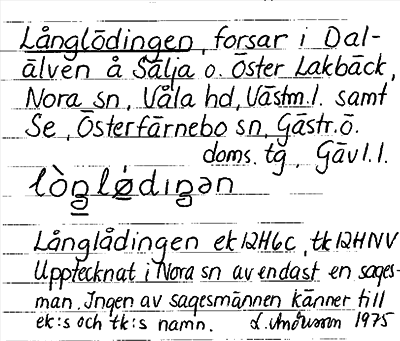 Långlödingen, forsar i Dal-
älven å Sälja o. Öster Lakbäck,
Nora sn, Våla hd, Västm.l. samt
Se, Österfärnebo sn, Gästr.ö.
doms. tg, Gävl.l.
lòŋlǿdiŋən
Långlådingen ek12H6c, tk12HNV
Upptecknat i Nora sn av endast en sages-
man. Ingen av sagesmännen känner till
ek:s och tk:s namn. L. Andersson 1975